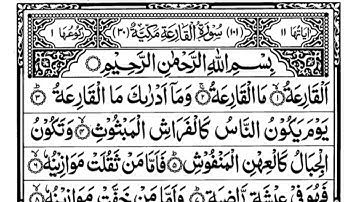 اٰيَاتُهَا ١١ (١٠١) سُوْرَةُ الْقَارِعَةِ مَكِّيَّةٌ (٣٠) رُكُوْعُهَا ١
بِسْمِ اللّٰهِ الرَّحْمٰنِ الرَّحِيْمِ
اَلْقَارِعَةُ ۙ‏﴿١﴾ مَا الْقَارِعَةُ ۚ‏﴿٢﴾ وَمَاۤ اَدْرٰىكَ مَا الْقَارِعَةُ ؕ‏﴿٣﴾
يَوْمَ يَكُوْنُ النَّاسُ كَالْفَرَاشِ الْمَبْثُوْثِ ۙ‏﴿٤﴾ وَتَكُوْنُ
الْجِبَالُ كَالْعِهْنِ الْمَنْفُوْشِ ؕ‏﴿٥﴾ فَاَمَّا مَنْ ثَقُلَتْ مَوَازِيْنُهٗ ۙ‏﴿٦﴾
فَهُوَ فِىْ عِيْشَةٍ رَّاضِيَةٍ ؕ‏﴿٧﴾ وَاَمَّا مَنْ خَفَّتْ مَوَازِيْنُهٗ ۙ‏﴿٨﴾